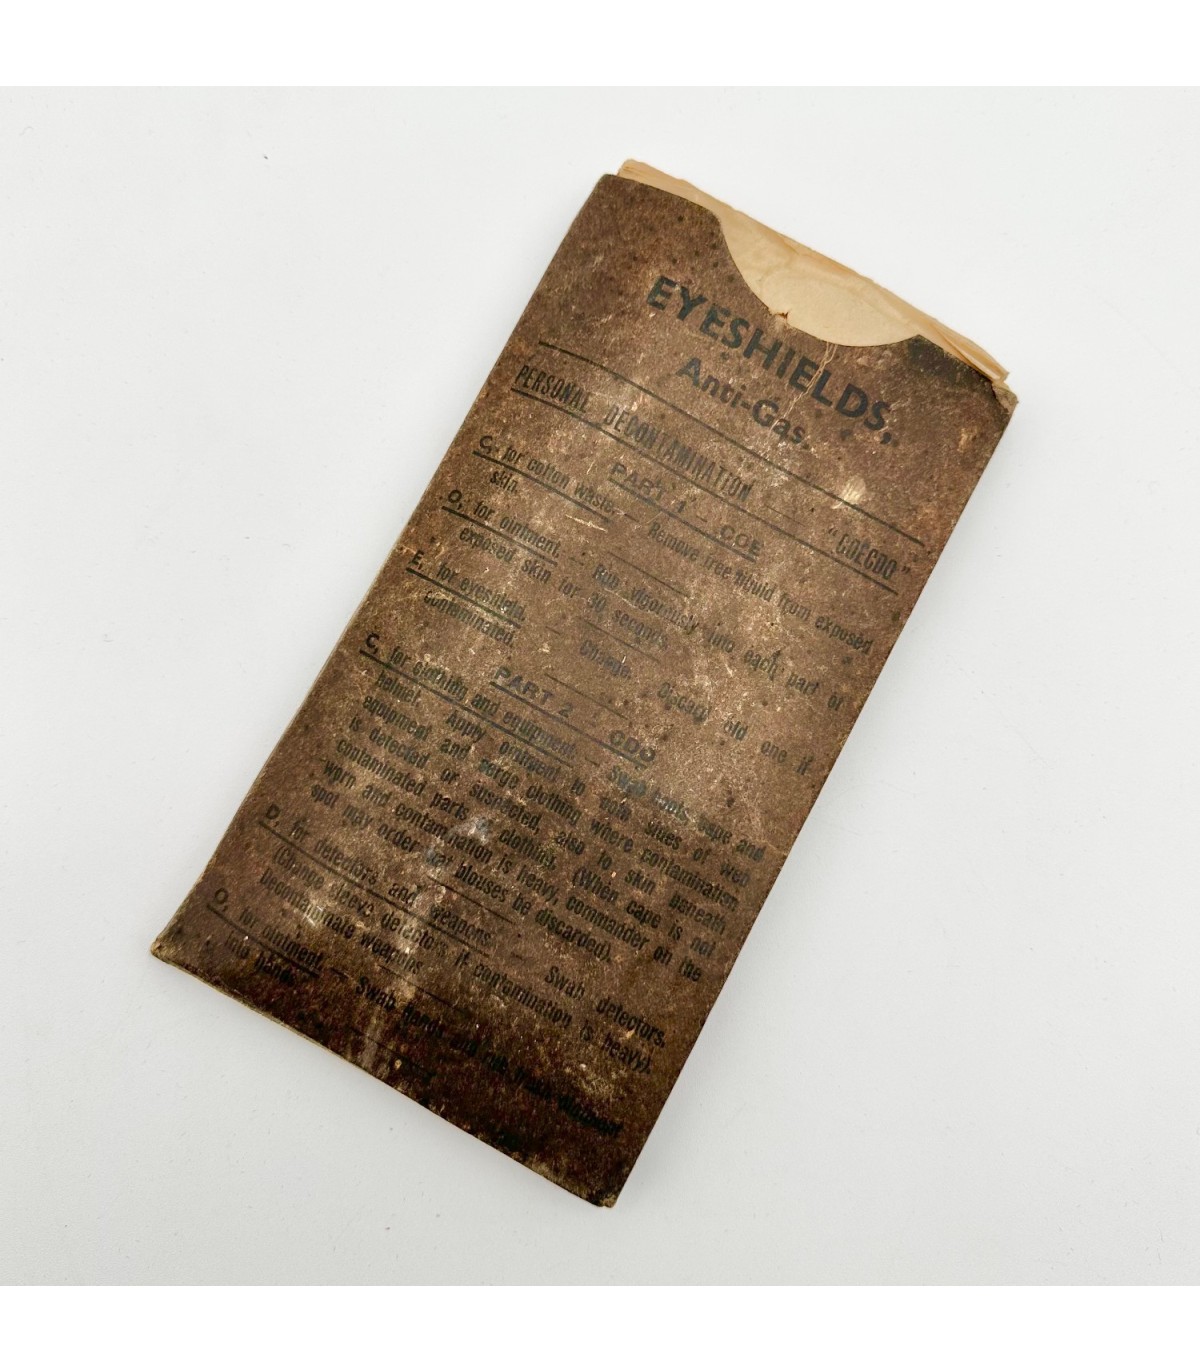 EYESHIELDS,
Anti-Gas.
PERSONAL DECONTAMINATION — "COECDO"
PART 1 — COE
C, for cotton waste. — Remove free liquid from exposed
skin.
O, for ointment. — Rub vigorously into each part of
exposed skin for 30 seconds.
E, for eyeshield. — Change. Discard old one if
contaminated.
PART 2 — CDO
C, for clothing and equipment. — Swab boots, cape and
helmet. Apply ointment to both sides of web
equipment and serge clothing where contamination
is detected or suspected, also to skin beneath
contaminated parts of clothing. (When cape is not
worn and contamination is heavy, commander on the
spot may order that blouses be discarded).
D, for detectors and weapons — Swab detectors.
(Change sleeve detectors if contamination is heavy).
Decontaminate weapons
O, for ointment. — Swab hands and rub fresh ointment
into hands.